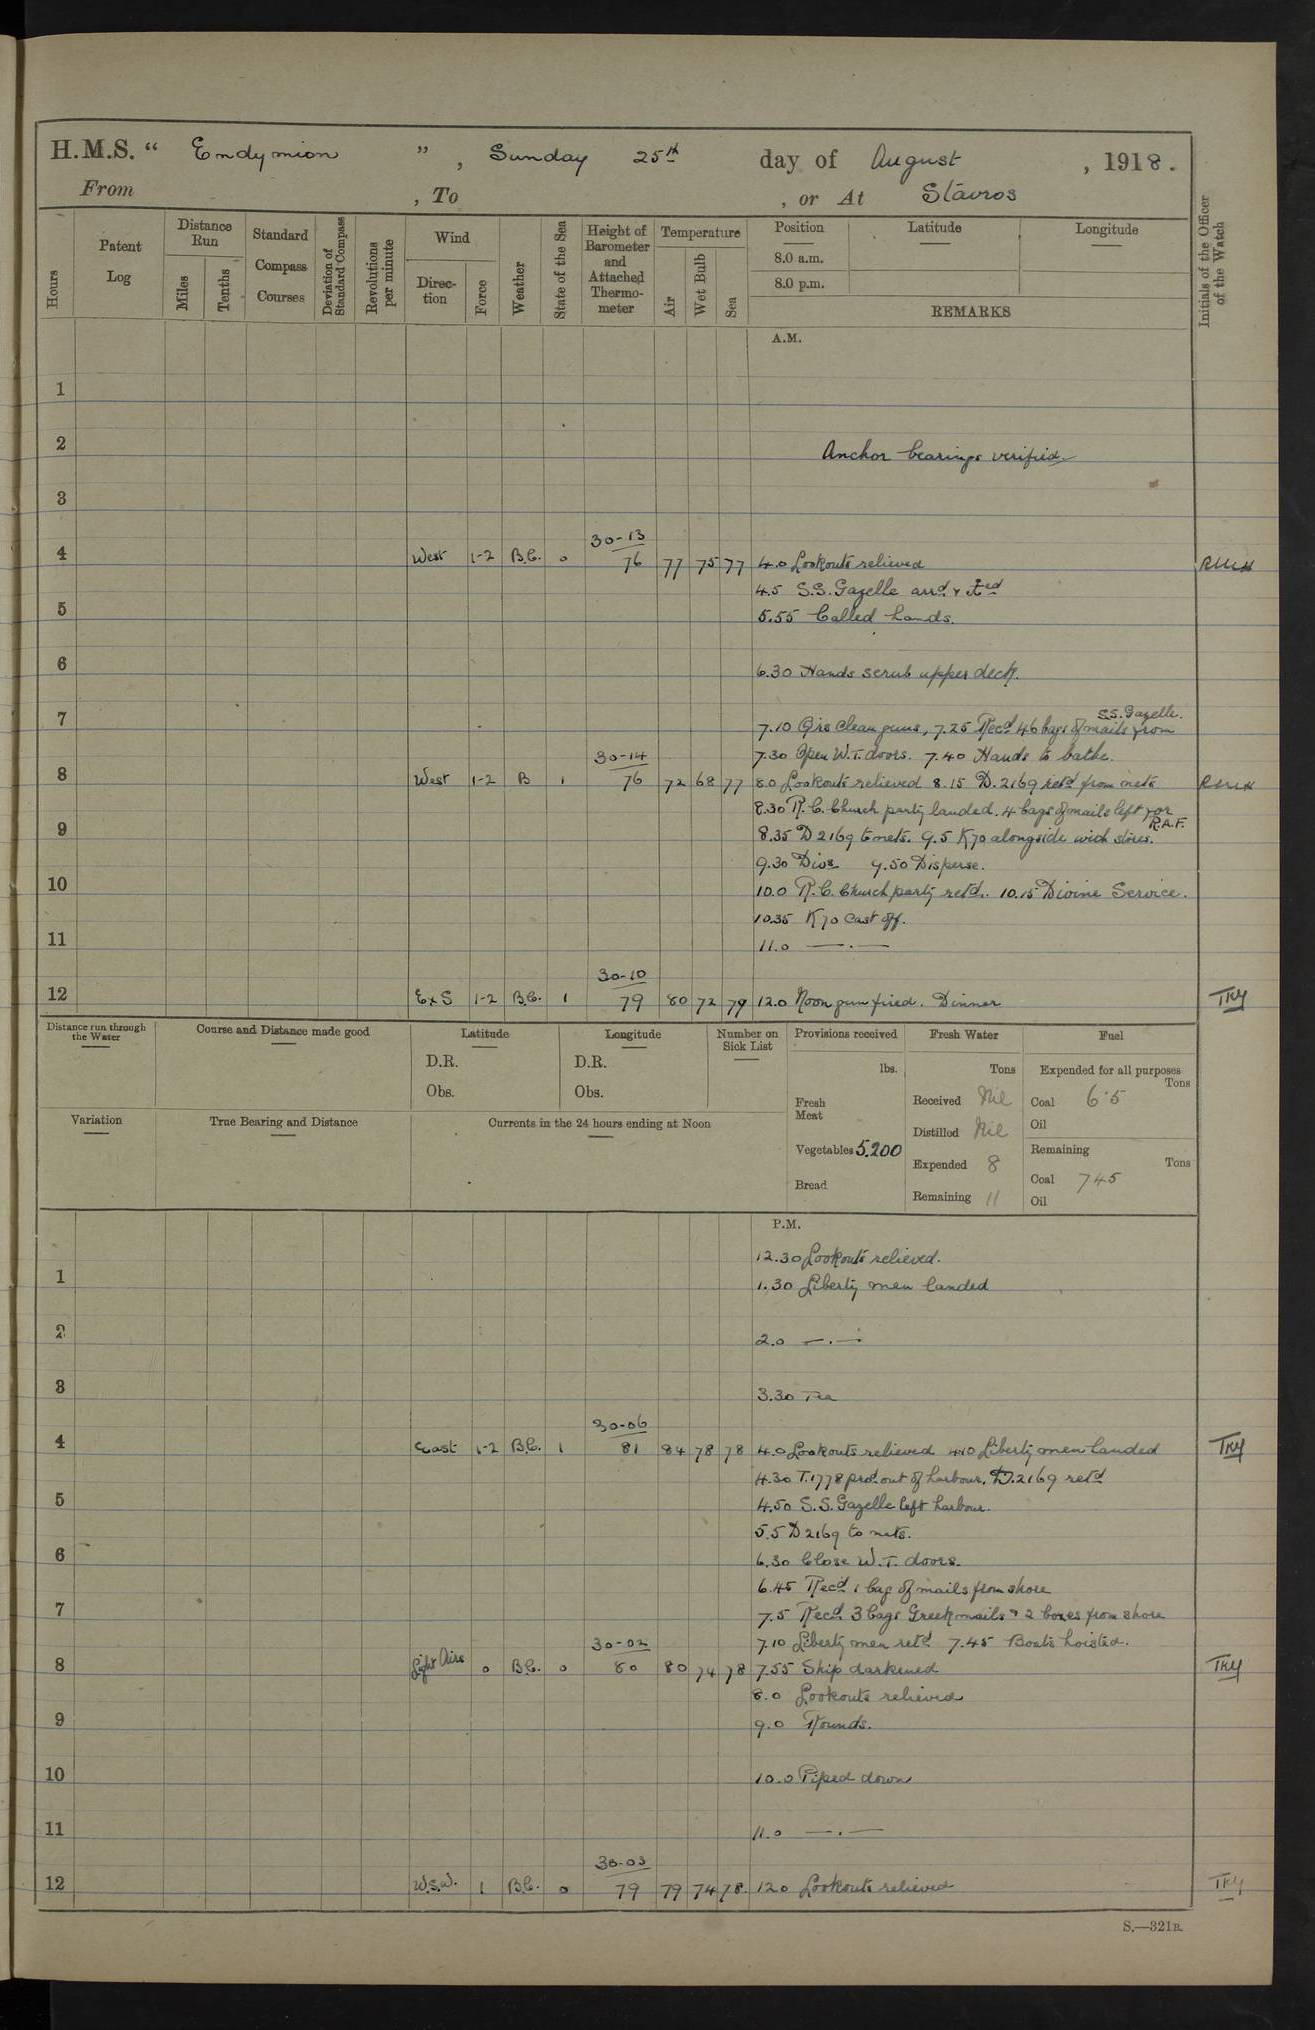 H.M.S. “ Endymion ” , Sunday 25th day of August , 1918.
From , To , or At Stavros
Hours
Patent Log
Distance Run
Miles
Tenths
Standard Compass Courses
Deviation of Standard Compass
Revolutions per minute
Wind
Direction
Force
Weather
State of the Sea
Height of Barometer and Attached Thermometer
Temperature
Air
Wet Bulb
Sea
Position
8.0 a.m.
8.0 p.m.
Latitude
Longitude
REMARKS
Initials of the Officer of the Watch
A.M.
1
2
Anchor bearings verified
3
30-13
4 West 1-2 B.C. 0 76 77 75 77 4.0 Lookouts relieved
4.5 S.S. Gazelle arrd &
5 5.55 Called hands.
6 6.30 Hands scrub upper deck.
S.S. Gazelle.
7 7.10 Qrs clean guns, 7.25 Recd 46 bags of mails from
30-14 7.30 Open W.T. doors. 7.40 Hands to bathe.
8 West 1-2 B 1 76 72 68 77 8.0 Lookouts relieved 8.15 D.2169 retd from nets
8.30 R.C. Church party landed. 4 bags of mails left for R.A.F.
9 8.35 D2169 to nets. 9.5 K70 alongside with stores.
9.30 Divs 9.50 Disperse.
10 10.0 R.C. Church party retd. 10.15 Divine Service.
10.35 K70 cast off.
11 11.0 — . —
30-10
12 ExS 1-2 B.C. 1 79 80 72 79 12.0 Noon gun fired. Dinner TKY
Distance run through the Water
Course and Distance made good
Latitude
D.R.
Obs.
Longitude
D.R.
Obs.
Number on Sick List
Variation
True Bearing and Distance
Currents in the 24 hours ending at Noon
Provisions received
lbs.
Fresh Meat
Vegetables 5.200
Bread
Fresh Water
Tons
Received Nil
Distilled Nil
Expended 8
Remaining 11
Fuel
Expended for all purposes
Tons
Coal 6.5
Oil
Remaining
Tons
Coal 745
Oil
P.M.
12.30 Lookouts relieved.
1 1.30 Liberty men landed
2 2.0 — . —
3 3.30 Tea
30-06
4 East 1-2 B.C. 1 81 84 78 78 4.0 Lookouts relieved 4.10 Liberty men landed TKY
4.30 T.1778 procd out of harbour. D.2169 retd
5 4.50 S.S. Gazelle left harbour.
5.5 D2169 to nets.
6 6.30 Close W.T. doors.
6.45 Recd 1 bag of mails from shore
7 7.5 Recd 3 bags Greek mails & 2 boxes from shore
30-02 7.10 Liberty men retd 7.45 Boats hoisted.
8 Light Airs 0 B.C. 0 80 80 74 78 7.55 Ship darkened TKY
8.0 Lookouts relieved
9 9.0 Rounds.
10 10.0 Piped down
11 11.0 — . —
30-03
12 W.S.W. 1 B.C. 0 79 79 74 78. 12.0 Lookouts relieved TKY
S.—321B.